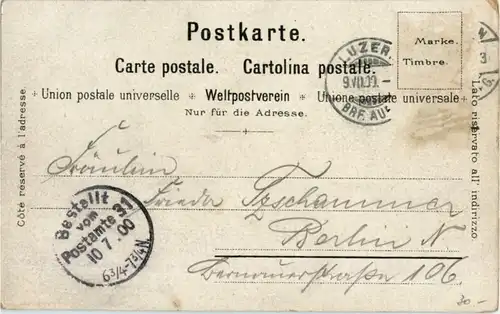 Postkarte.
Carte postale. Cartolina postale.
+ Union postale universelle + Weltpostverein + Unione postale universale +
Nur für die Adresse.
Marke.
Timbre.
LUZERN
9.VII.00.-
BRF. AUF
3
Côté réservé à l'adresse.
Lato riservato all' indirizzo
Fräulein
Frieda Tzschammer
Berlin N
Bernauerstraße 106.
Bestellt
vom
Postamte 31
10 7. 00
6 3/4-7 3/4 N.
30.-